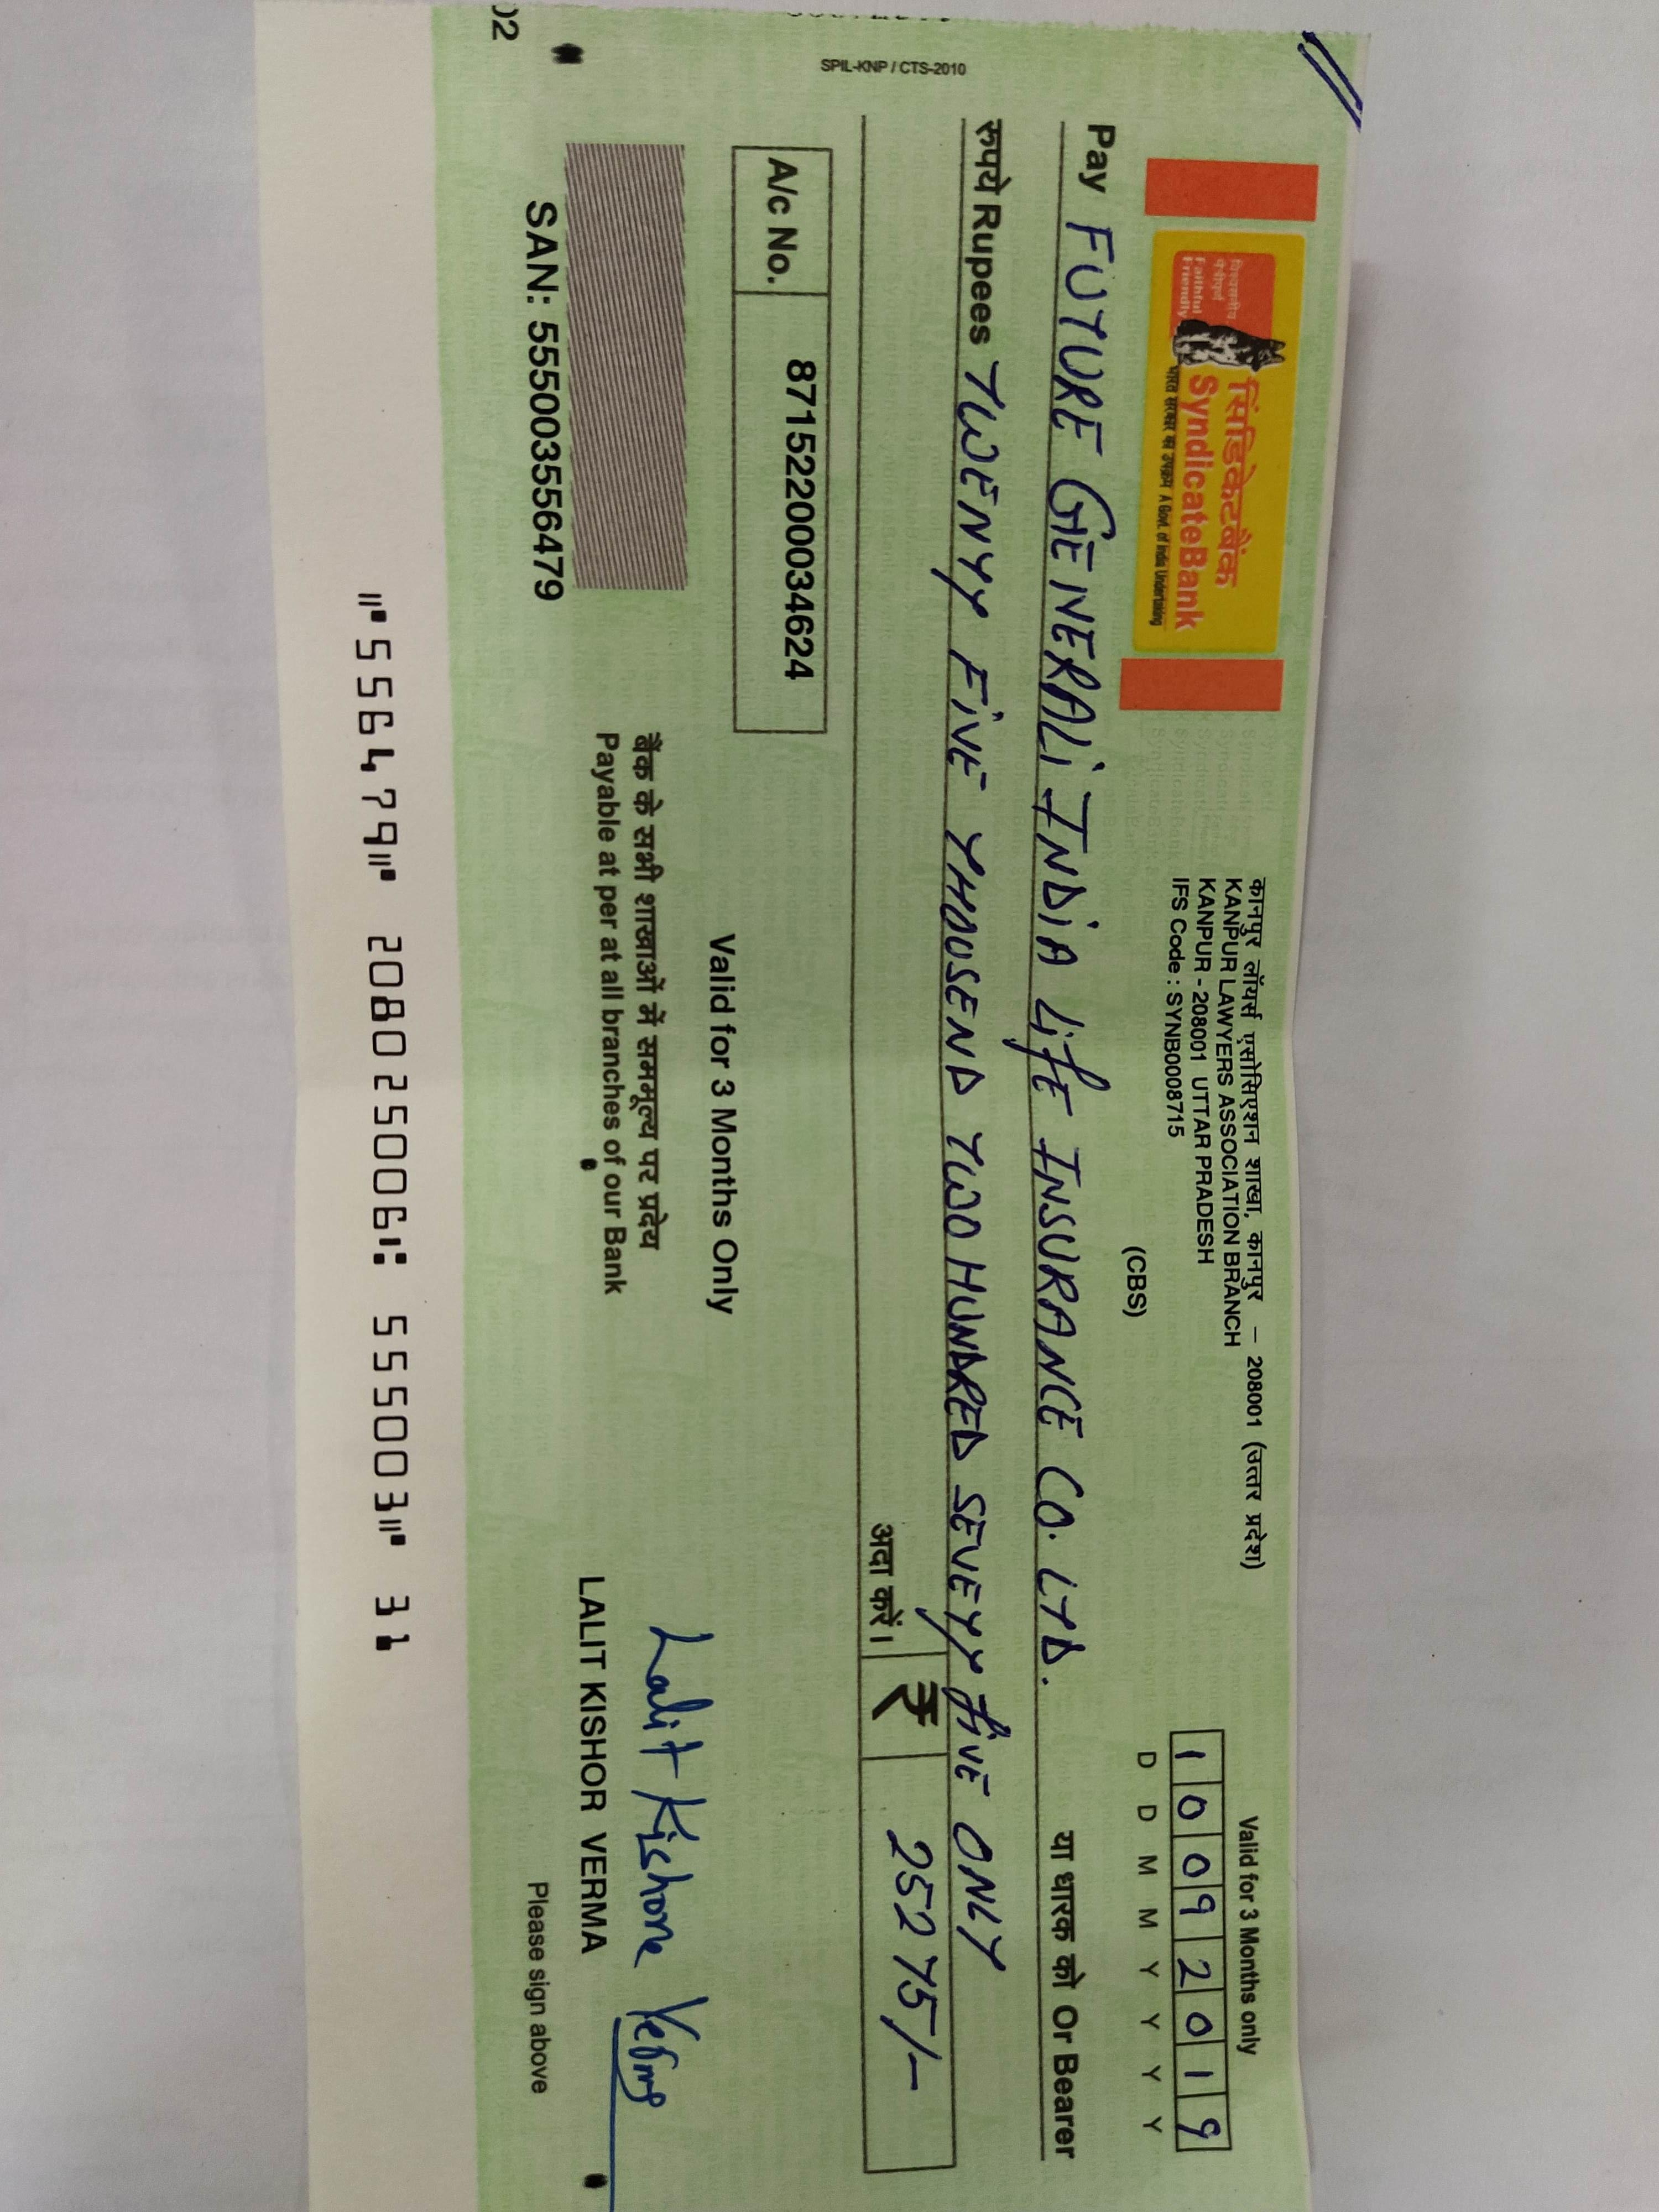 विश्वसनीय
मैत्रीपूर्ण
Faithful
Friendly
सिंडिकेटबैंक
SyndicateBank
भारत सरकार का उपक्रम A Govt. of India Undertaking
कानपुर लॉयर्स एसोसिएशन शाखा, कानपुर – 208001 (उत्तर प्रदेश)
KANPUR LAWYERS ASSOCIATION BRANCH
KANPUR - 208001 UTTAR PRADESH
IFS Code : SYNB0008715
(CBS)
Valid for 3 Months only
10092019
D D M M Y Y Y Y
Pay FUTURE GENERALI INDIA LIFE INSURANCE CO. LTD. या धारक को Or Bearer
रुपये Rupees TWENTY FIVE THOUSEND TWO HUNDRED SEVETY FIVE ONLY
अदा करें। ₹ 25275/-
A/c No. 87152200034624
Valid for 3 Months Only
बैंक के सभी शाखाओं में सममूल्य पर प्रदेय
Payable at per at all branches of our Bank
Lalit Kishore Verma
LALIT KISHOR VERMA
Please sign above
SAN: 555003556479
SPIL-KNP / CTS-2010
02
⑈556479⑈ 208025006⑆ 555003⑈ 31